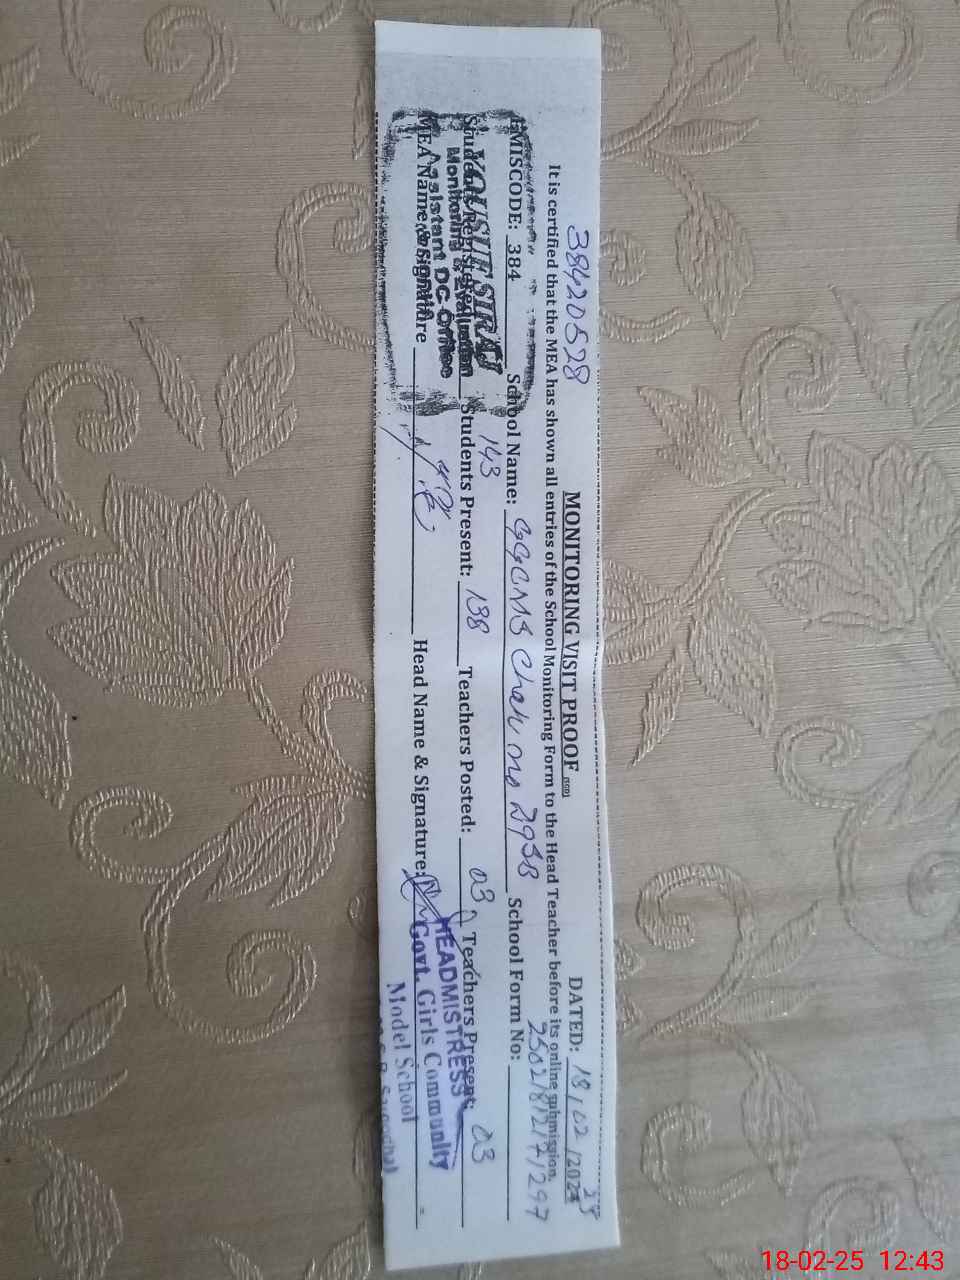 MONITORING VISIT PROOF (SED)
DATED: 18/02/2025
38420528
It is certified that the MEA has shown all entries of the School Monitoring Form to the Head Teacher before its online submission.
EMISCODE: 384 School Name: GGCMS Chak no 29SB School Form No:
Students Registered 143 Students Present: 138 Teachers Posted: 03 Teachers Present: 03
MEA Name & Signature Head Name & Signature:
YOUSUF SIRAJ
Monitoring & Evaluation
Assistant DC Office
HEADMISTRESS
Govt. Girls Community
Model School
18-02-25 12:43